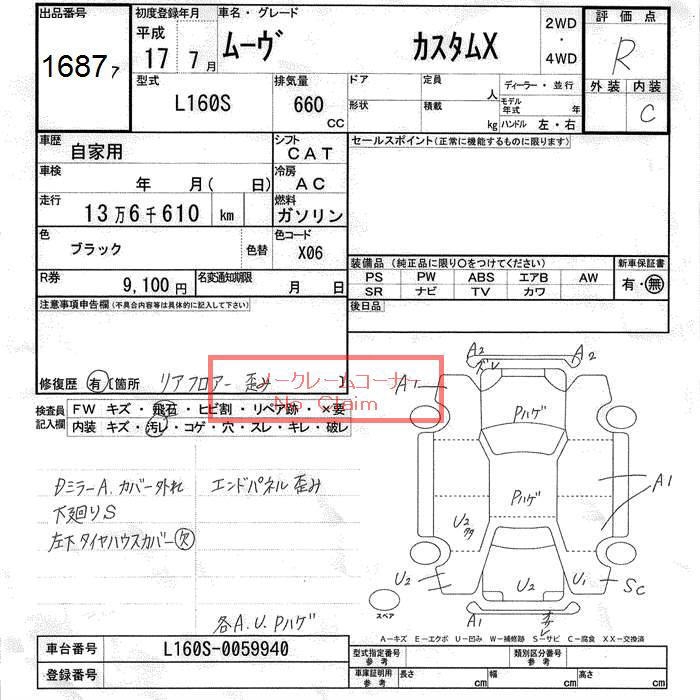 出品番号
1687ァ
初度登録年月
平成
17 7月
車名・グレード
ムーヴ カスタムX
2WD
・
4WD
評価点
R
外装 内装
C
型式
L160S
排気量
660
CC
ドア 定員 人
形状 積載 kg
ディーラー・並行
モデル年式 年
ハンドル 左・右
車歴
自家用
シフト
CAT
車検
年 月( 日)
冷房
AC
走行
13万6千610 km
燃料
ガソリン
色
ブラック
色替
色コード
X06
R券
9,100円
名変通知期限
月 日
セールスポイント(正常に機能するものに限ります)
装備品(純正品に限り〇をつけてください)
PS PW ABS エアB AW
SR ナビ TV カワ
新車保証書
有・無
後日品
注意事項申告欄(不具合内容等は具体的に記入して下さい)
修復歴 有 〔箇所 リアフロアー 歪み 〕
ノークレームコーナー
No Claim
検査員
記入欄
FW キズ・飛石・ヒビ割・リペア跡・×要
内装 キズ・汚レ・コゲ・穴・スレ・キレ・破レ
Dミラー A. カバー外れ
下廻りS
左下タイヤハウスカバー欠
エンドパネル歪み
各A.U.Pハゲ
A2
A2
A1
Pハゲ
Pハゲ
A1
U2
U2
U2
U1
Sc
A1
スペア
A−キズ E−エクボ U−凹み W−補修跡 S−サビ C−腐食 XX−交換済
車台番号
L160S-0059940
登録番号
型式指定番号
参考
類別区分番号
参考
車庫証明用
参考
長さ cm
幅 cm
高さ cm